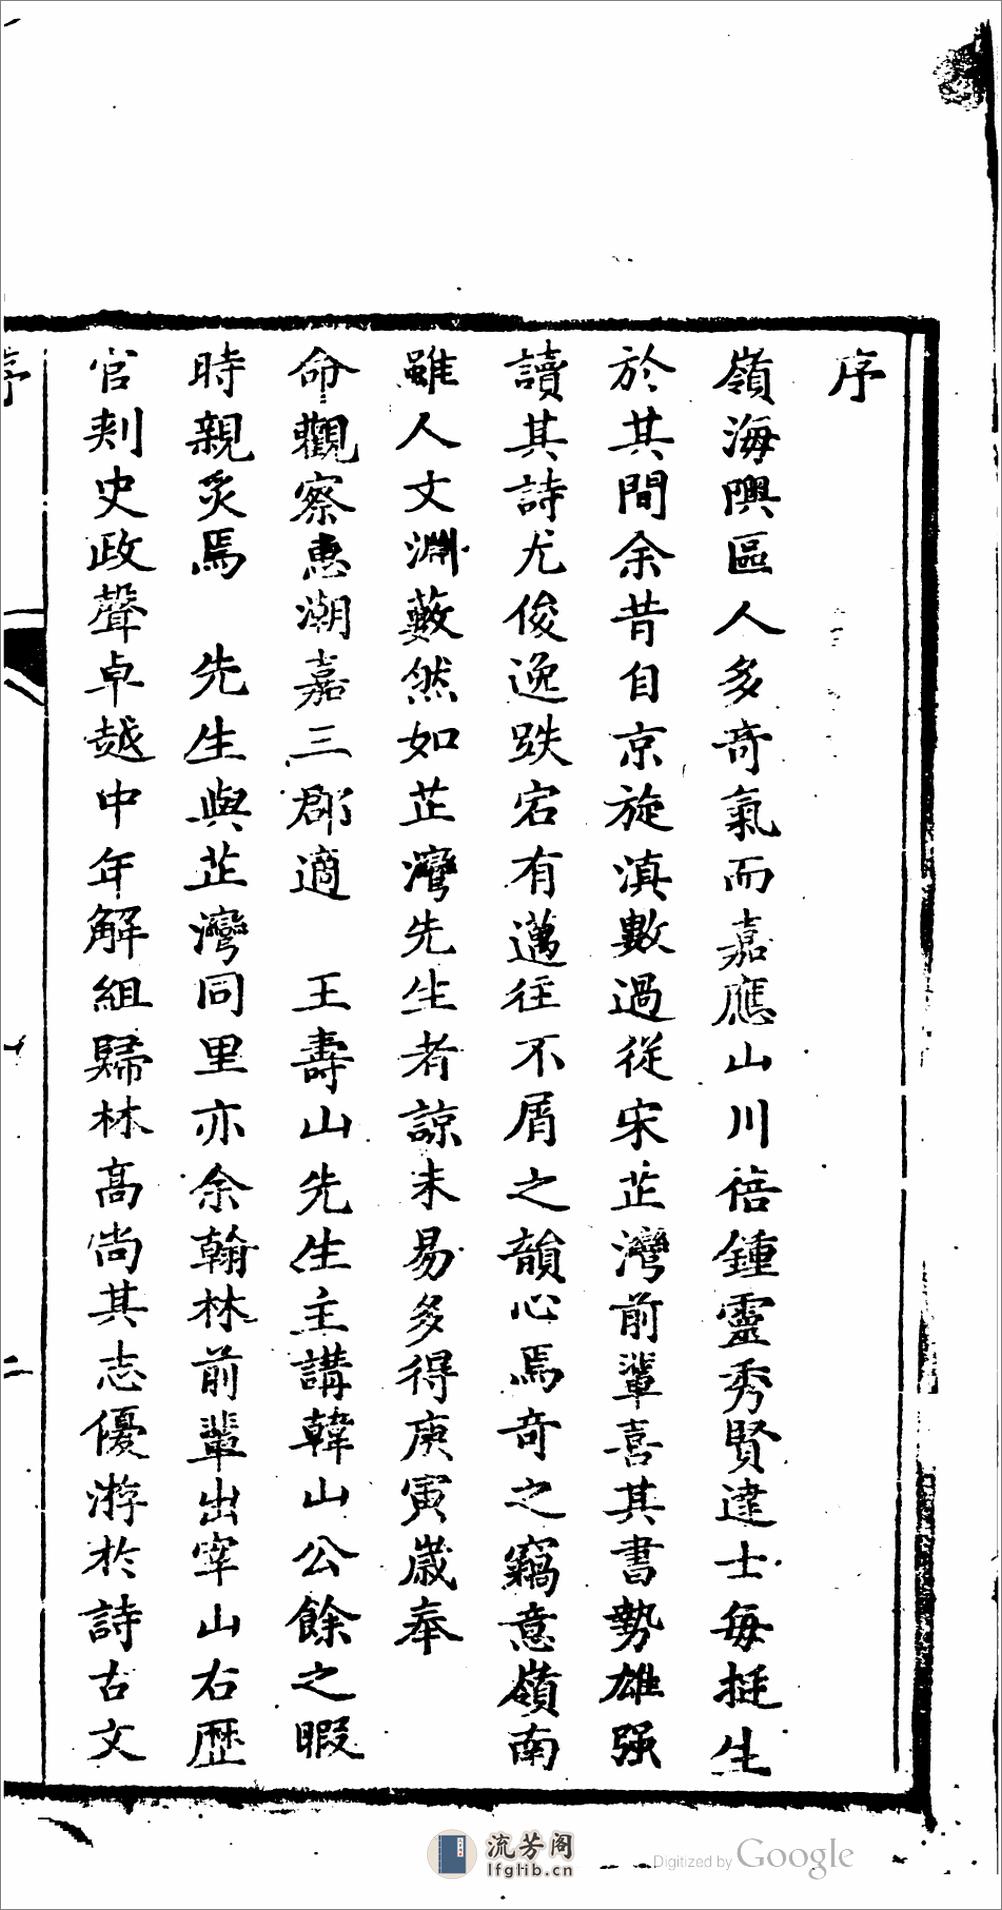 序
嶺海隩區人多奇氣而嘉應山川倍鍾靈秀賢達士每挺生
於其間余昔自京旋滇數過從宋芷灣前輩喜其書勢雄强
讀其詩尤俊逸跌宕有邁往不屑之韻心焉奇之竊意嶺南
雖人文淵藪然如芷灣先生者諒未易多得庚寅歲奉
命觀察惠潮嘉三郡適 王壽山先生主講韓山公餘之暇
時親炙焉 先生與芷灣同里亦余翰林前輩出宰山右歷
官剌史政聲卓越中年解組歸林高尚其志優游於詩古文
序
二
流芳阁
lfglib.cn
Digitized by Google